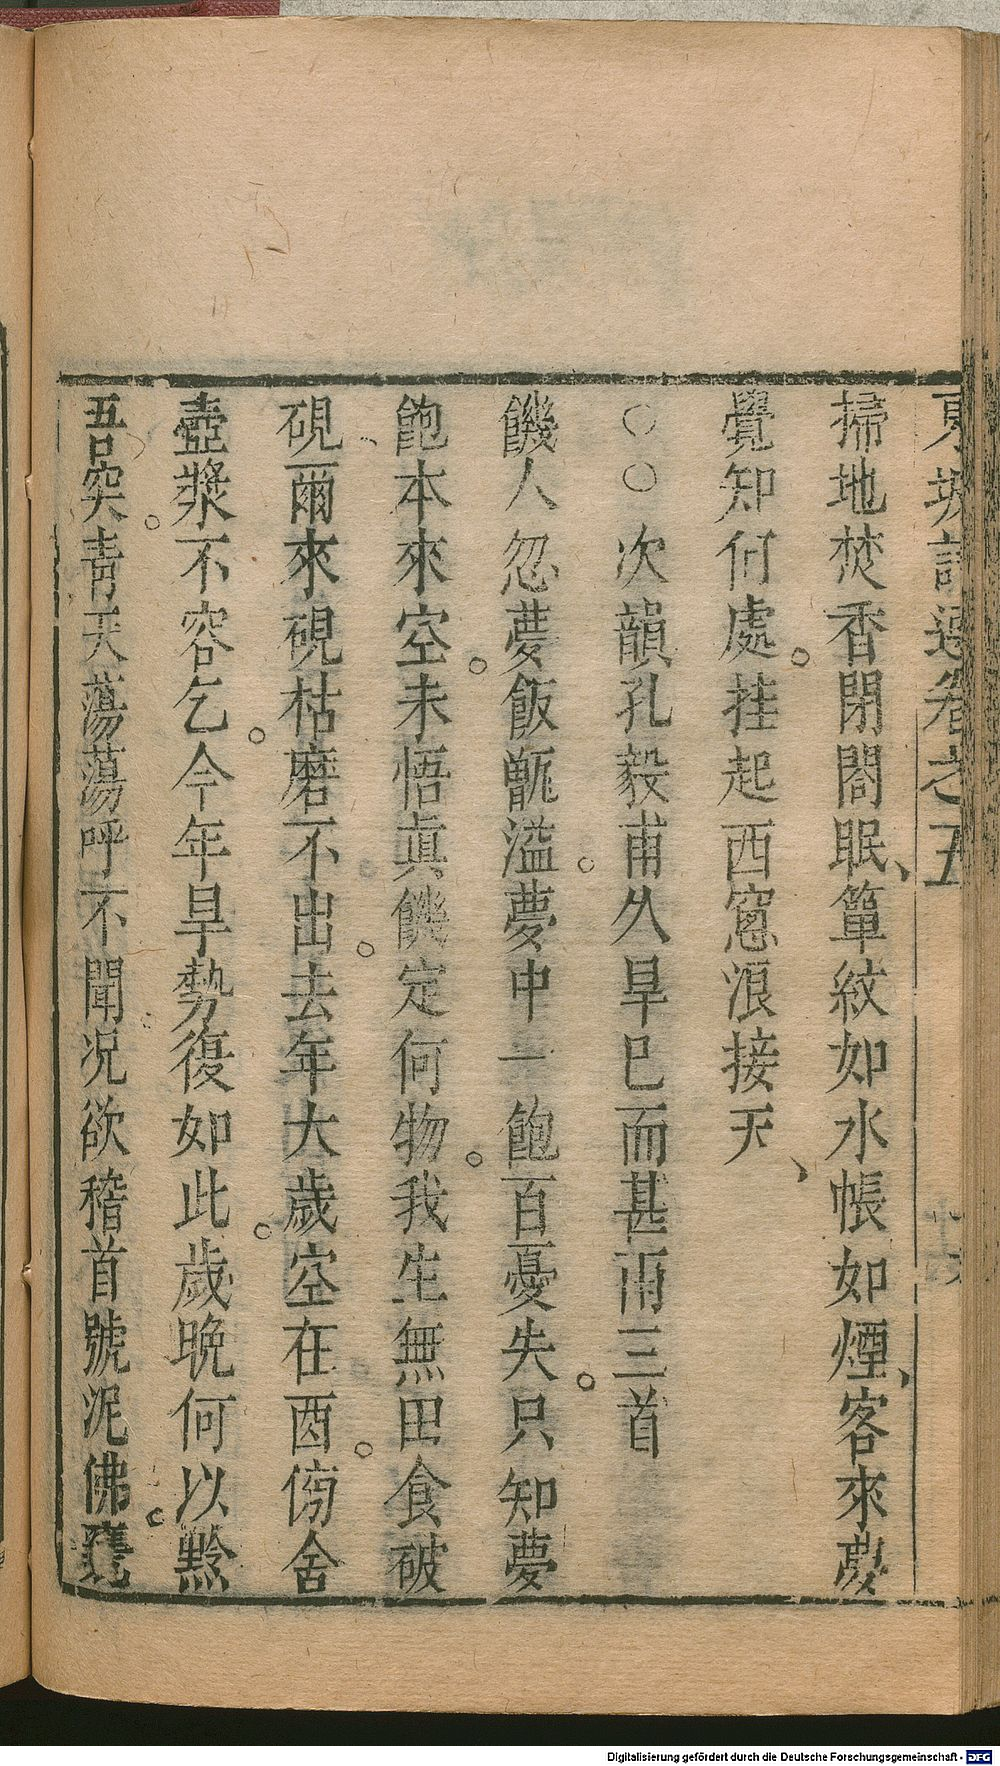 東坡詩選卷之五
掃地焚香閉閤眠、簟紋如水帳如煙、客來夢
覺知何處。挂起西窓浪接天、
○○次韻孔毅甫久旱巳而甚雨三首
饑人忽夢飯甑溢。夢中一飽百憂失。只知夢
飽本來空。未悟眞饑定何物。我生無田食破
硯。爾來硯枯磨不出。去年大歲空在酉。傍舍
壺漿不容乞。今年旱勢復如此。歲晩何以黔
吾突。青天蕩蕩呼不聞。况欲稽首號泥佛。甕
Digitalisierung gefördert durch die Deutsche Forschungsgemeinschaft - DFG